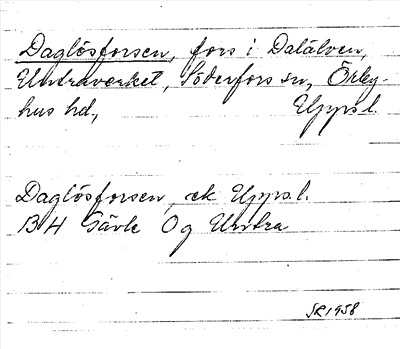 Daglösforsen, fors i Dalälven,
Untraverket, Söderfors sn, Örby-
hus hd., Upps.l.
Daglösforsen, ek Upps.l.
BH Gävle Og Untra
SR1958